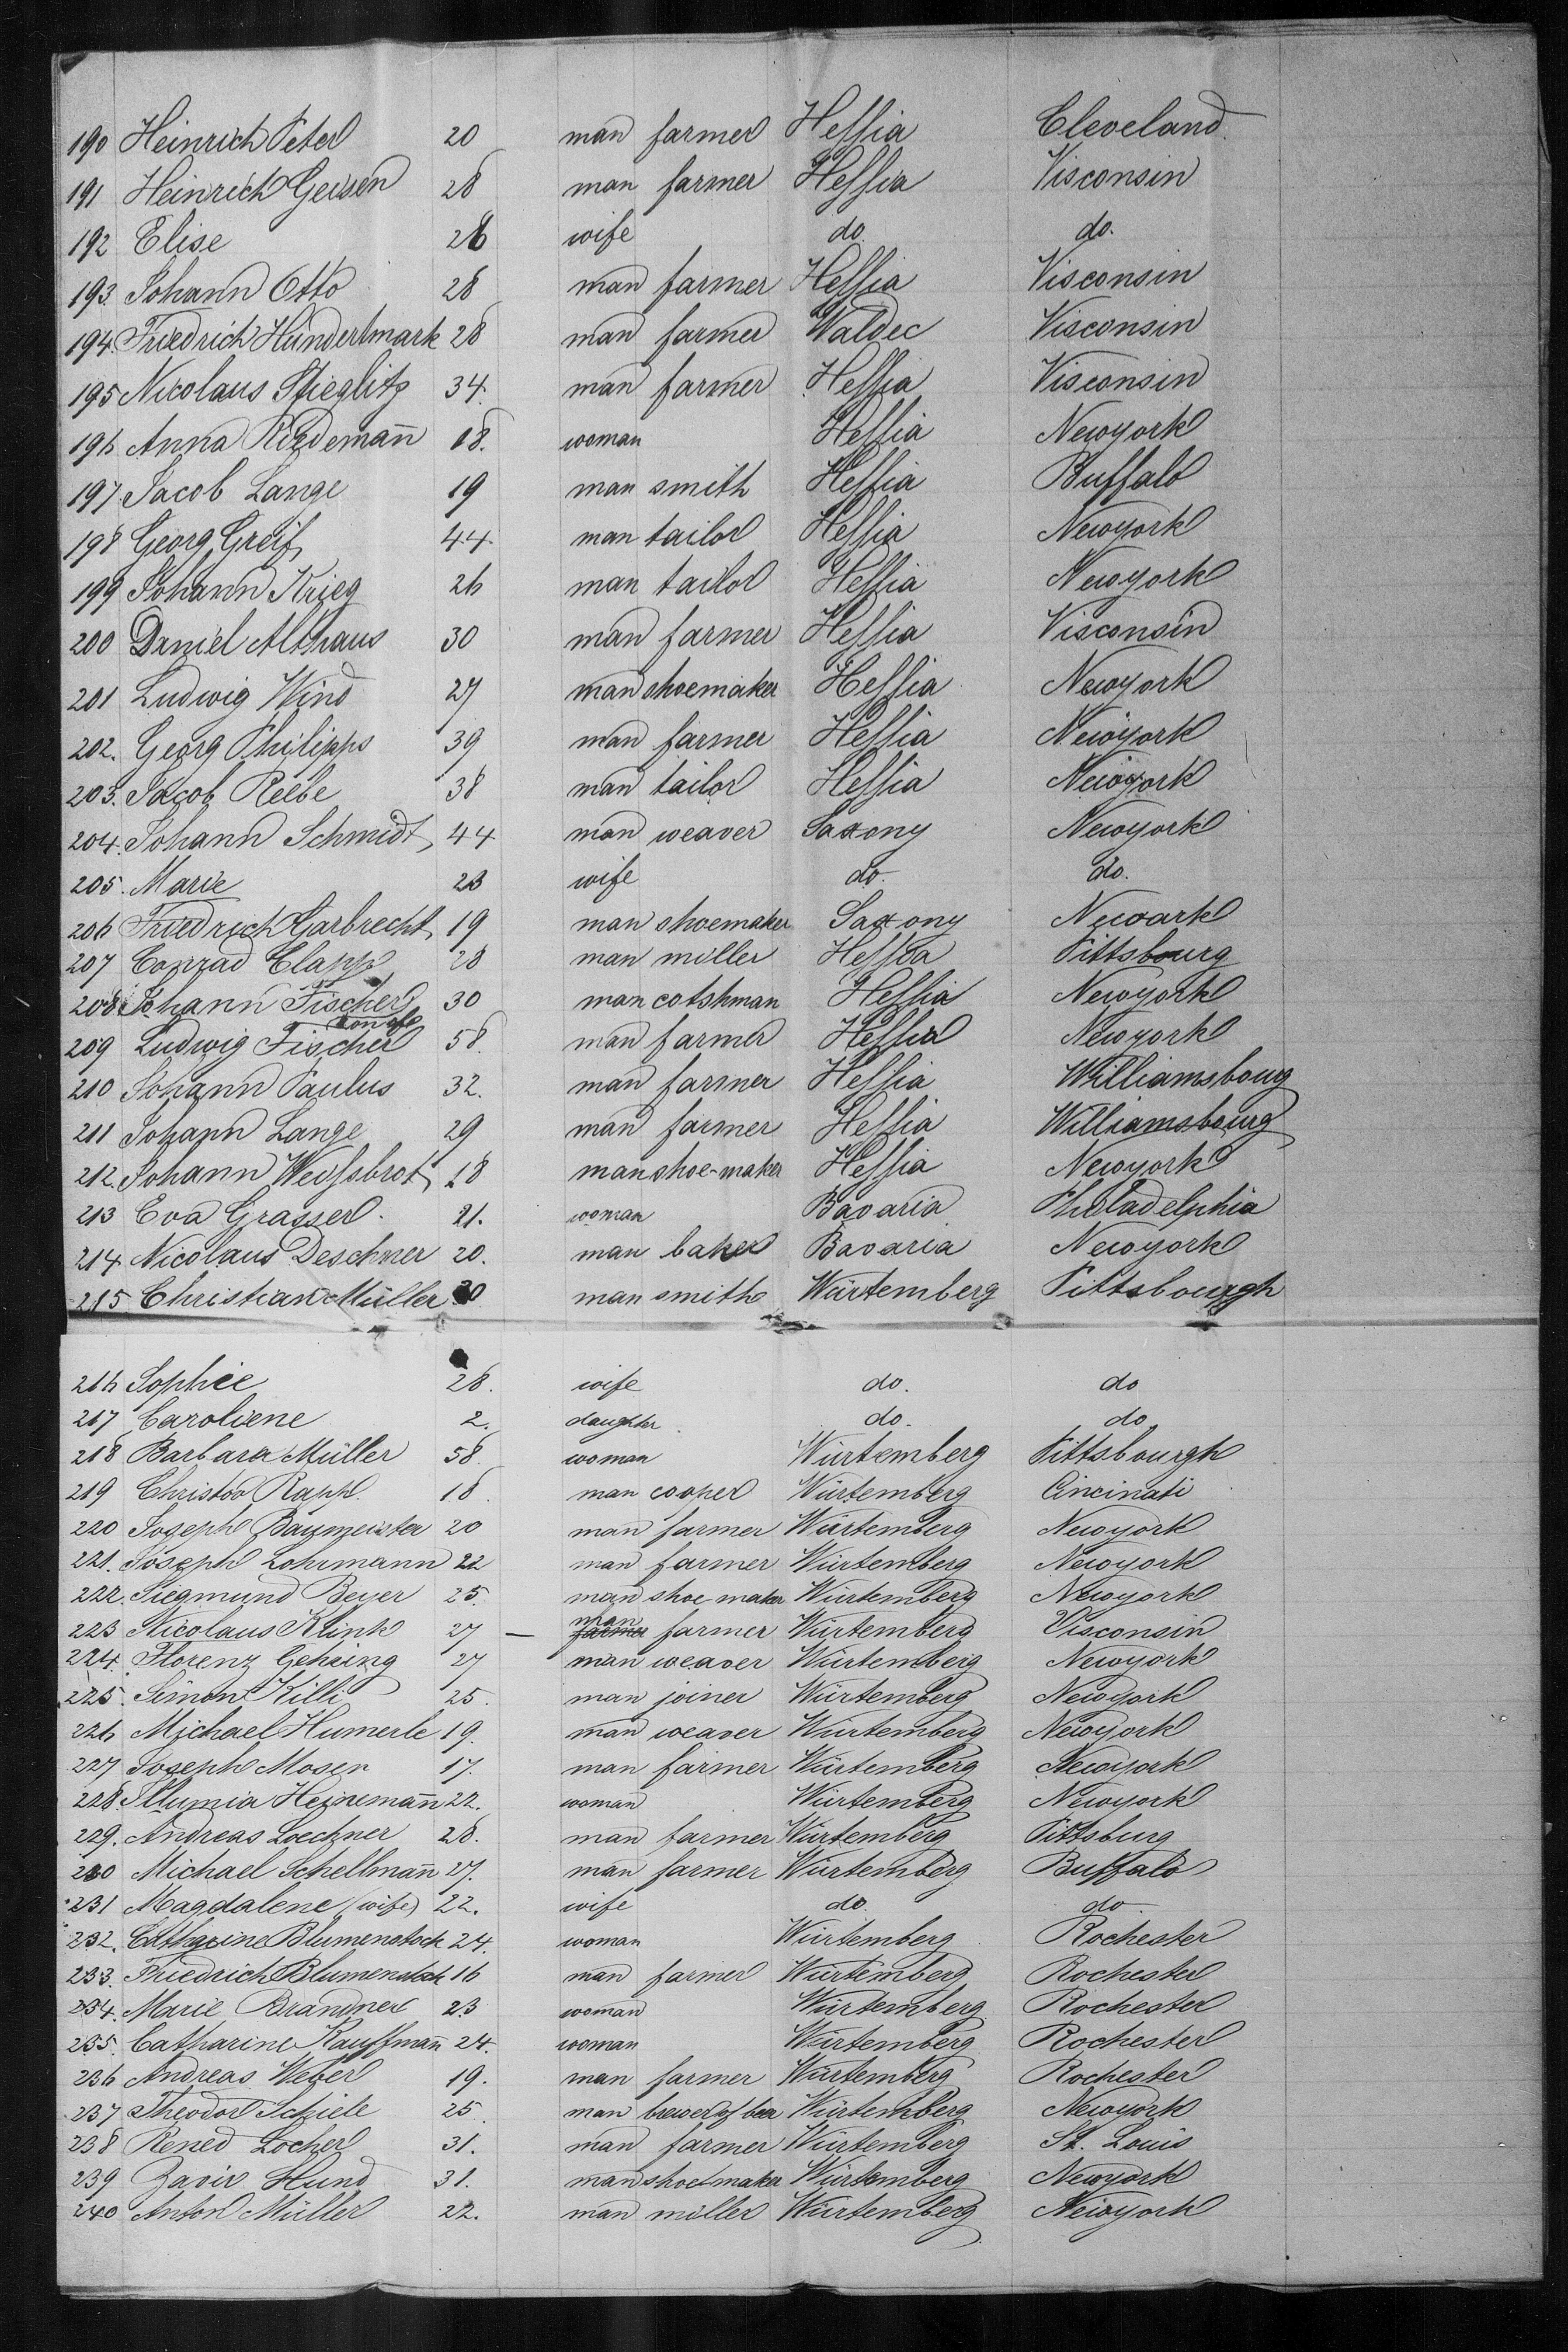 190 Heinrich Peter 20 man farmer Hessia Cleveland.
191 Heinrich Geisen 28 man farmer Hessia Visconsin
192 Elise 26 wife do do.
193. Johann Otto 28 man farmer Hessia Visconsin
194. Friedrich Hundertmark 28 man farmer Waldec Visconsin
195 Nicolaus Stieglitz 34. man farmer Hessia Visconsin
196 Anna Riedemañ 18. woman Hessia Newyork
197 Jacob Lange 19 man smith Hessia Buffalo
198 Georg Greif 44 man tailor Hessia Newyork
199 Johann Krieg 26 man tailor Hessia Newyork
200 Daniel Althaus 30 man farmer Hessia Visconsin
201 Ludwig Wind 27 man shoemaker Hessia Newyork
202. Georg Philipps 39 man farmer Hessia Newyork
203. Jacob Reebe 38 man tailor Hessia Newyork
204. Johann Schmidt 44 man weaver Saxony Newyork
205. Marie 23 wife do. do.
206 Friedrich Garbrecht 19 man shoemaker Saxony Newark
207 Conrad Clapp 28 man miller Hessia Pittsbourg
208 Johann Fischer 30 man cotshman Hessia Newyork
209 Ludwig Fischer 58. man farmer Hessia Newyork
210 Johann Paulus 32. man farmer Hessia Williamsboug
211 Johann Lange 29 man farmer Hessia Williamsbourg
212. Johann Weissbrot 18 man shoe-maker Hessia Newyork
213 Eva Grasser. 21. woman Bavaria Philadelphia
214 Nicolaus Deschner 20. man baker Bavaria Newyork
215 Christian Müller 30 man smith Würtemberg Pittsbourgh
216 Sophie 28. wife do. do
217 Caroliene 2. daughter. do. do
218 Barbara Müller 58. woman Würtemberg Pittsbourgh
219 Christof Rapp. 18. man cooper Würtemberg Cincinati
220 Joseph Baumeister 20 man farmer Würtemberg Newyork
221. Joseph Lohrmann 22 man farmer Würtemberg Newyork
222. Siegmund Beyer 25. man shoe maker Würtemberg Newyork
223 Nicolaus Klink 27 — man farmer Würtemberg Visconsin
224. Florenz Gehring 27 man weaver Würtemberg Newyork
225. Simon Killi 25. man joiner Würtemberg Newyork
226 Michael Humerle 19. man weaver Würtemberg Newyork
227 Joseph Moser 17. man farmer Würtemberg Newyork
228. Heinemañ 22. woman Würtemberg Newyork
229. Andreas Loechner 28. man farmer Würtemberg Pittsburg
230 Michael Schellmañ 27. man farmer Würtemberg Buffalo
231 Magdalene (wife) 22. wife do. do
232. Catharine Blumenstock 24. woman Würtemberg Rochester
233. Friedrich Blumenstock 16 man farmer Würtemberg Rochester
234. Marie Brandner 23 woman Würtemberg Rochester
235. Catharine Kauffmañ 24. woman Würtemberg Rochester
236 Andreas Weber 19. man farmer Würtemberg Rochester
237 Theodor Schiele 25. man brewer of beer Würtemberg Newyork
238 Rened Locher 31. man farmer Würtemberg St. Louis
239 Zavir Hund 31. man shoe maker Würtemberg Newyork
240 Anton Müller 22. man miller Würtemberg Newyork